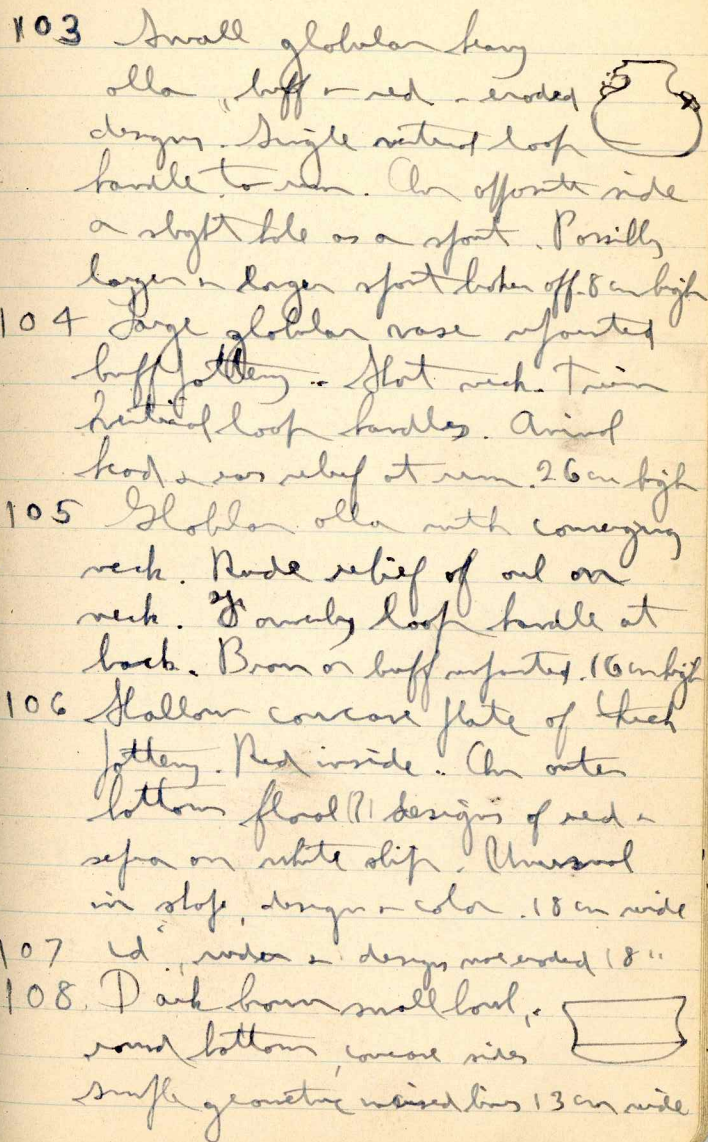 103 Small globular heavy
olla, buff & red - eroded
designs. Single vertical loop
handle to rim. On opposite side
a slight hole as a spout. Possibly
larger & longer spout broken off. 8 cm high
104 Large globular vase unpainted
buff pottery. Short neck. Twin
vertical loop handles. Animal
head relief at rim. 26 cm high
105 Globular olla with converging
neck. Rude relief of owl on
neck. Formerly loop handle at
back. Brown or buff unpainted. 16 cm high
106 Shallow concave plate of thick
pottery. Red inside. On outer
bottom floral (?) designs of red &
sepia on white slip. Unusual
in shape, design & color. 18 cm wide
107 id", & designs more eroded 18 "
108. Dark brown small bowl,
round bottom, concave sides
simple geometric incised lines 13 cm wide